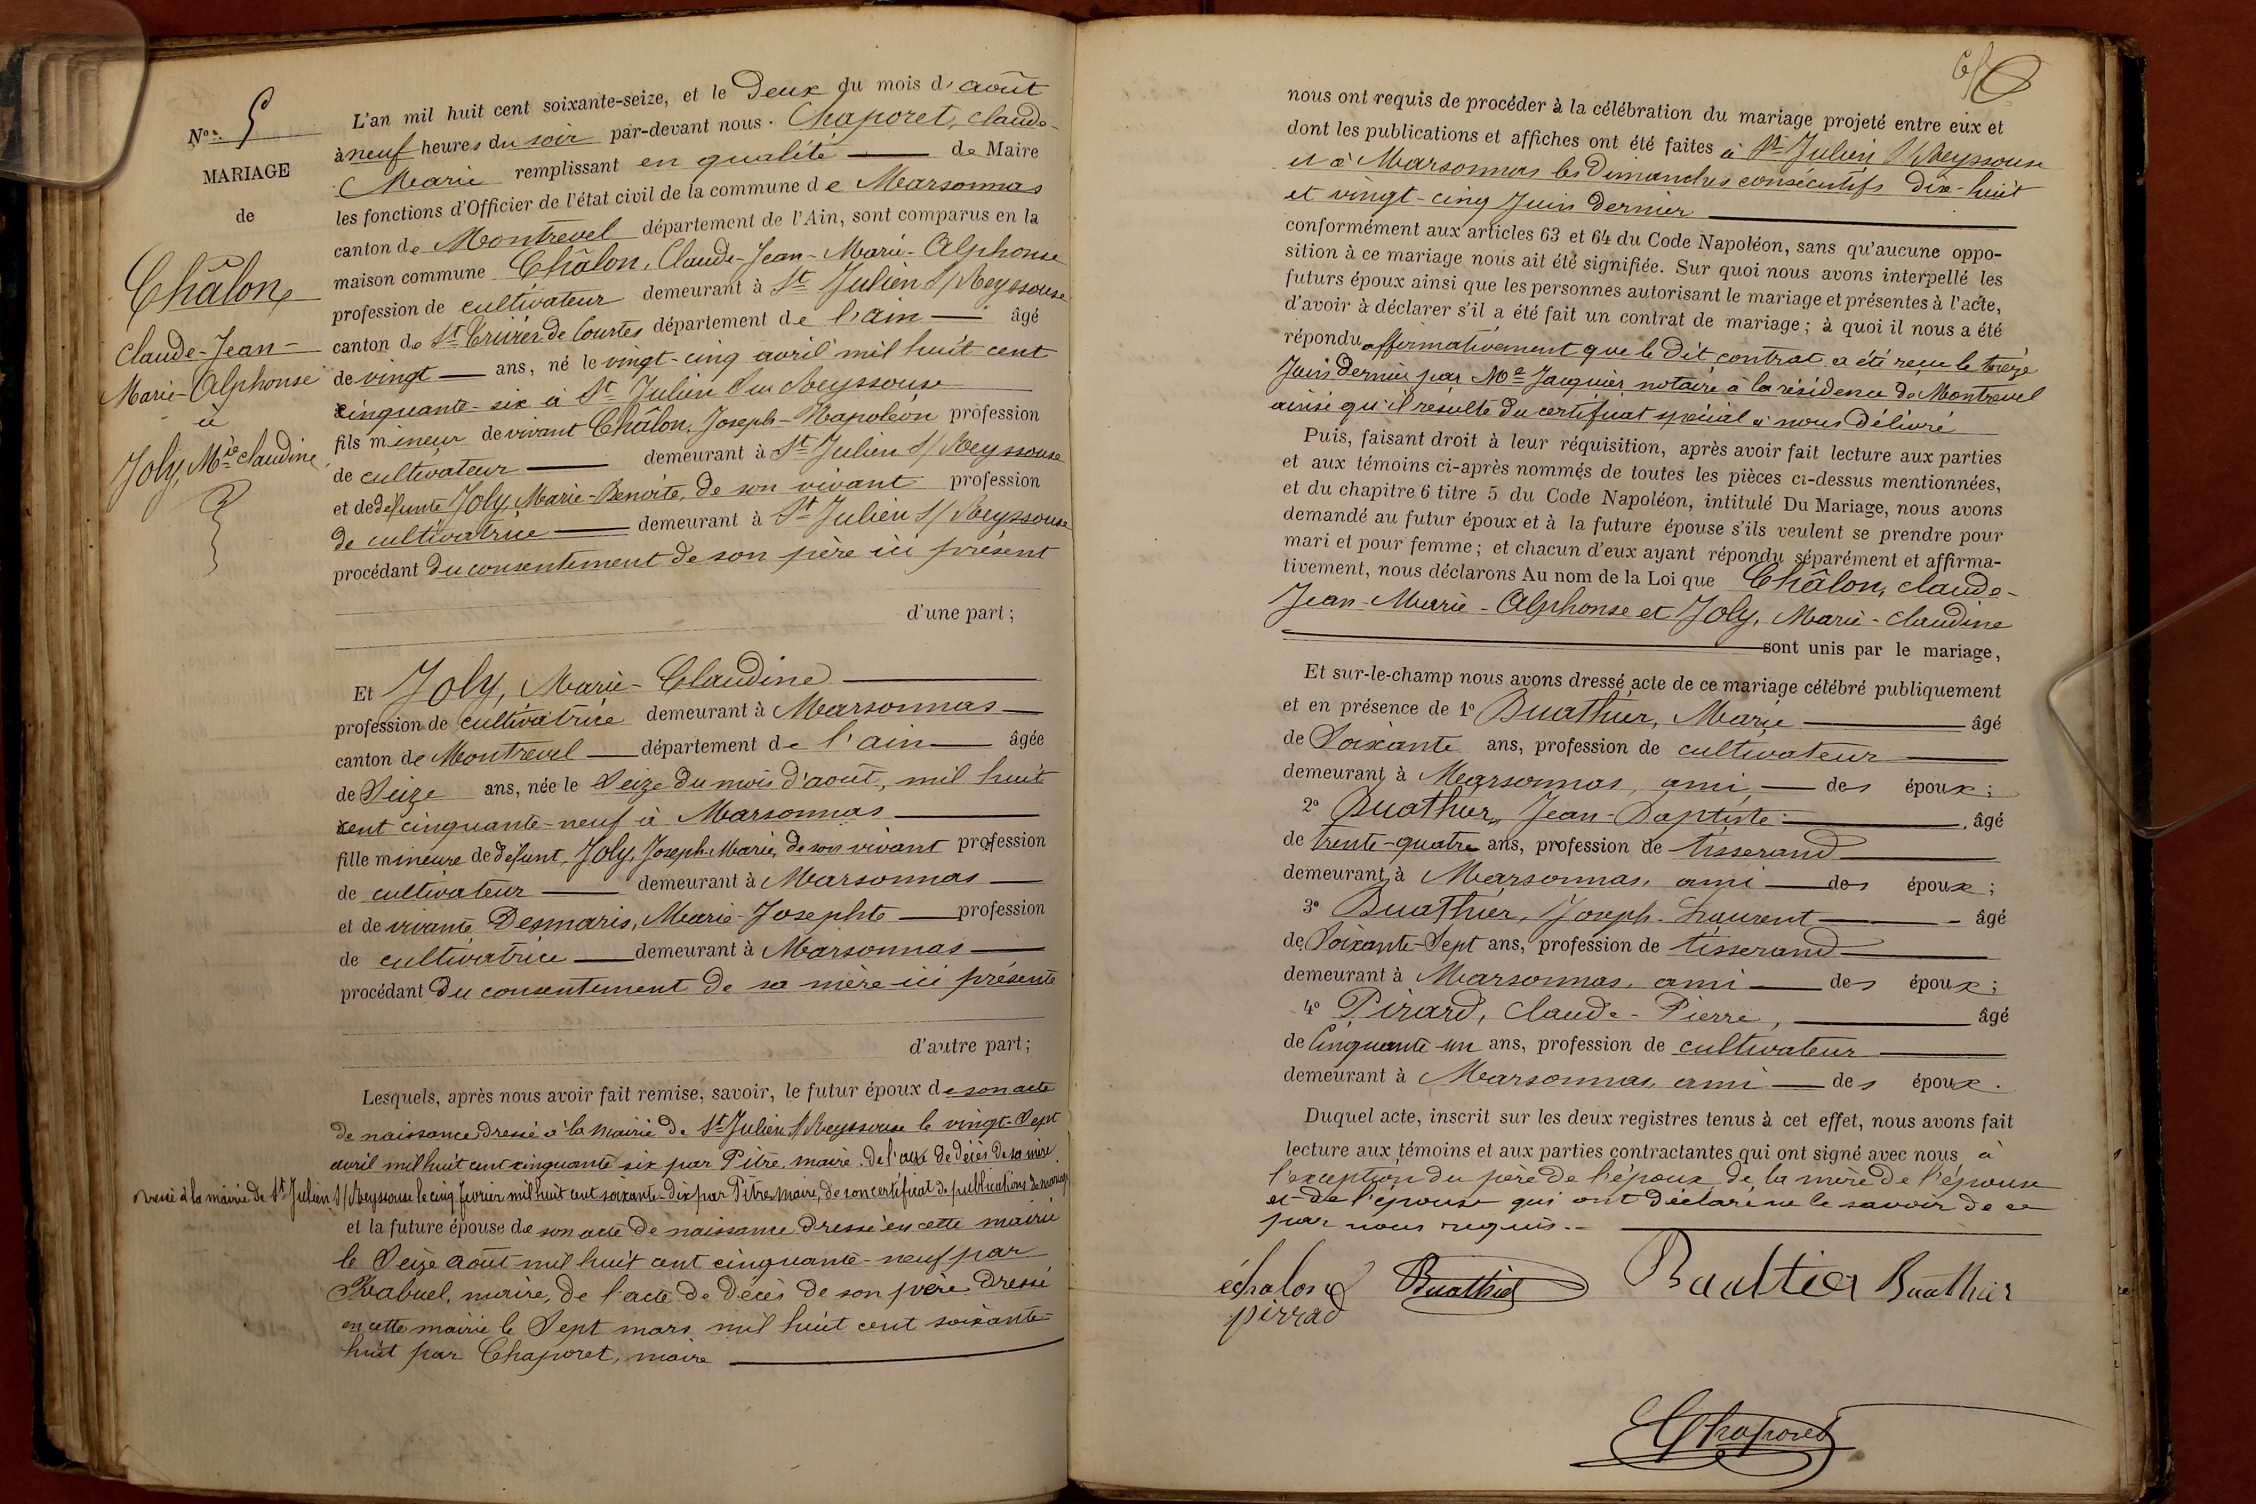 N° 5
MARIAGE
de
Châlon,
Claude-Jean-
Marie-Alphonse
à
Joly, Mie Claudine
L'an mil huit cent soixante-seize, et le Deux du mois d'août
à neuf heures du soir par-devant nous Chaporet, Claude-
Marie remplissant en qualité de Maire
les fonctions d'Officier de l'état civil de la commune de Marsonnas
canton de Montrevel département de l'Ain, sont comparus en la
maison commune Châlon, Claude-Jean-Marie-Alphonse
profession de cultivateur demeurant à St Julien S/ Reyssouse
canton de St Trivier de Courtes département de l'ain âgé
de vingt ans, né le vingt-cinq avril mil huit cent
cinquante-six à St Julien Sur Reyssouse
fils mineur de vivant Châlon, Joseph-Napoléon profession
de cultivateur demeurant à St Julien S/ Reyssouse
et de défunte Joly, Marie-Benoite, de son vivant profession
de cultivatrice demeurant à St Julien S/ Reyssouse
procédant du consentement de son père ici présent
d'une part;
Et Joly, Marie-Claudine
profession de cultivatrice demeurant à Marsonnas
canton de Montrevel département de l'ain âgée
de Seize ans, née le Seize du mois d'août, mil huit
cent cinquante-neuf à Marsonnas
fille mineure de défunt, Joly, Joseph-Marie, de son vivant profession
de cultivateur demeurant à Marsonnas
et de vivante Desmaris, Marie-Josephte profession
de cultivatrice demeurant à Marsonnas
procédant du consentement de sa mère ici présente
d'autre part;
Lesquels, après nous avoir fait remise, savoir, le futur époux de son acte
de naissance dressé à la mairie de St Julien S/ Reyssouse le vingt-Sept
avril mil huit cent cinquante six par Pitre, maire, de l'acte de décès de sa mère
dressé à la mairie de St Julien S/ Reyssouse le cinq février mil huit cent soixante-dix par Pitre, maire, de son certificat de publications de mariage
et la future épouse de son acte de naissance dressé en cette mairie
le Seize août mil huit cent cinquante-neuf par
Rabuel, maire, de l'acte de décès de son père dressé
en cette mairie le Sept mars mil huit cent soixante-
huit par Chaporet, maire
nous ont requis de procéder à la célébration du mariage projeté entre eux et
dont les publications et affiches ont été faites à St Julien S/ Reyssouse
et à Marsonnas les Dimanches consécutifs dix-huit
et vingt-cinq Juin dernier
conformément aux articles 63 et 64 du Code Napoléon, sans qu'aucune oppo-
sition à ce mariage nous ait été signifiée. Sur quoi nous avons interpellé les
futurs époux ainsi que les personnes autorisant le mariage et présentes à l'acte,
d'avoir à déclarer s'il a été fait un contrat de mariage; à quoi il nous a été
répondu affirmativement que le dit contrat a été reçu le treize
Juin dernier par Me Jacquier notaire à la résidence de Montrevel
ainsi qu'il résulte du certificat spécial à nous délivré
Puis, faisant droit à leur réquisition, après avoir fait lecture aux parties
et aux témoins ci-après nommés de toutes les pièces ci-dessus mentionnées,
et du chapitre 6 titre 5 du Code Napoléon, intitulé Du Mariage, nous avons
demandé au futur époux et à la future épouse s'ils veulent se prendre pour
mari et pour femme; et chacun d'eux ayant répondu séparément et affirma-
tivement, nous déclarons Au nom de la Loi que Châlon, Claude-
Jean-Marie-Alphonse et Joly, Marie-Claudine
sont unis par le mariage,
Et sur-le-champ nous avons dressé acte de ce mariage célébré publiquement
et en présence de 1° Buathier, Marie âgé
de Soixante ans, profession de cultivateur
demeurant à Marsonnas, ami des époux;
2° Buathier, Jean-Baptiste âgé
de trente-quatre ans, profession de tisserand
demeurant à Marsonnas, ami des époux;
3° Buathier, Joseph-Laurent âgé
de Soixante-Sept ans, profession de tisserand
demeurant à Marsonnas, ami des époux;
4° Pirard, Claude-Pierre, âgé
de Cinquante-un ans, profession de cultivateur
demeurant à Marsonnas, ami des époux.
Duquel acte, inscrit sur les deux registres tenus à cet effet, nous avons fait
lecture aux témoins et aux parties contractantes qui ont signé avec nous à
l'exception du père de l'époux, de la mère de l'épouse
et de l'épouse qui ont déclaré ne le savoir de ce
par nous requis.
échalon Buathier Buatier Buathier
pirrad
Chaporet